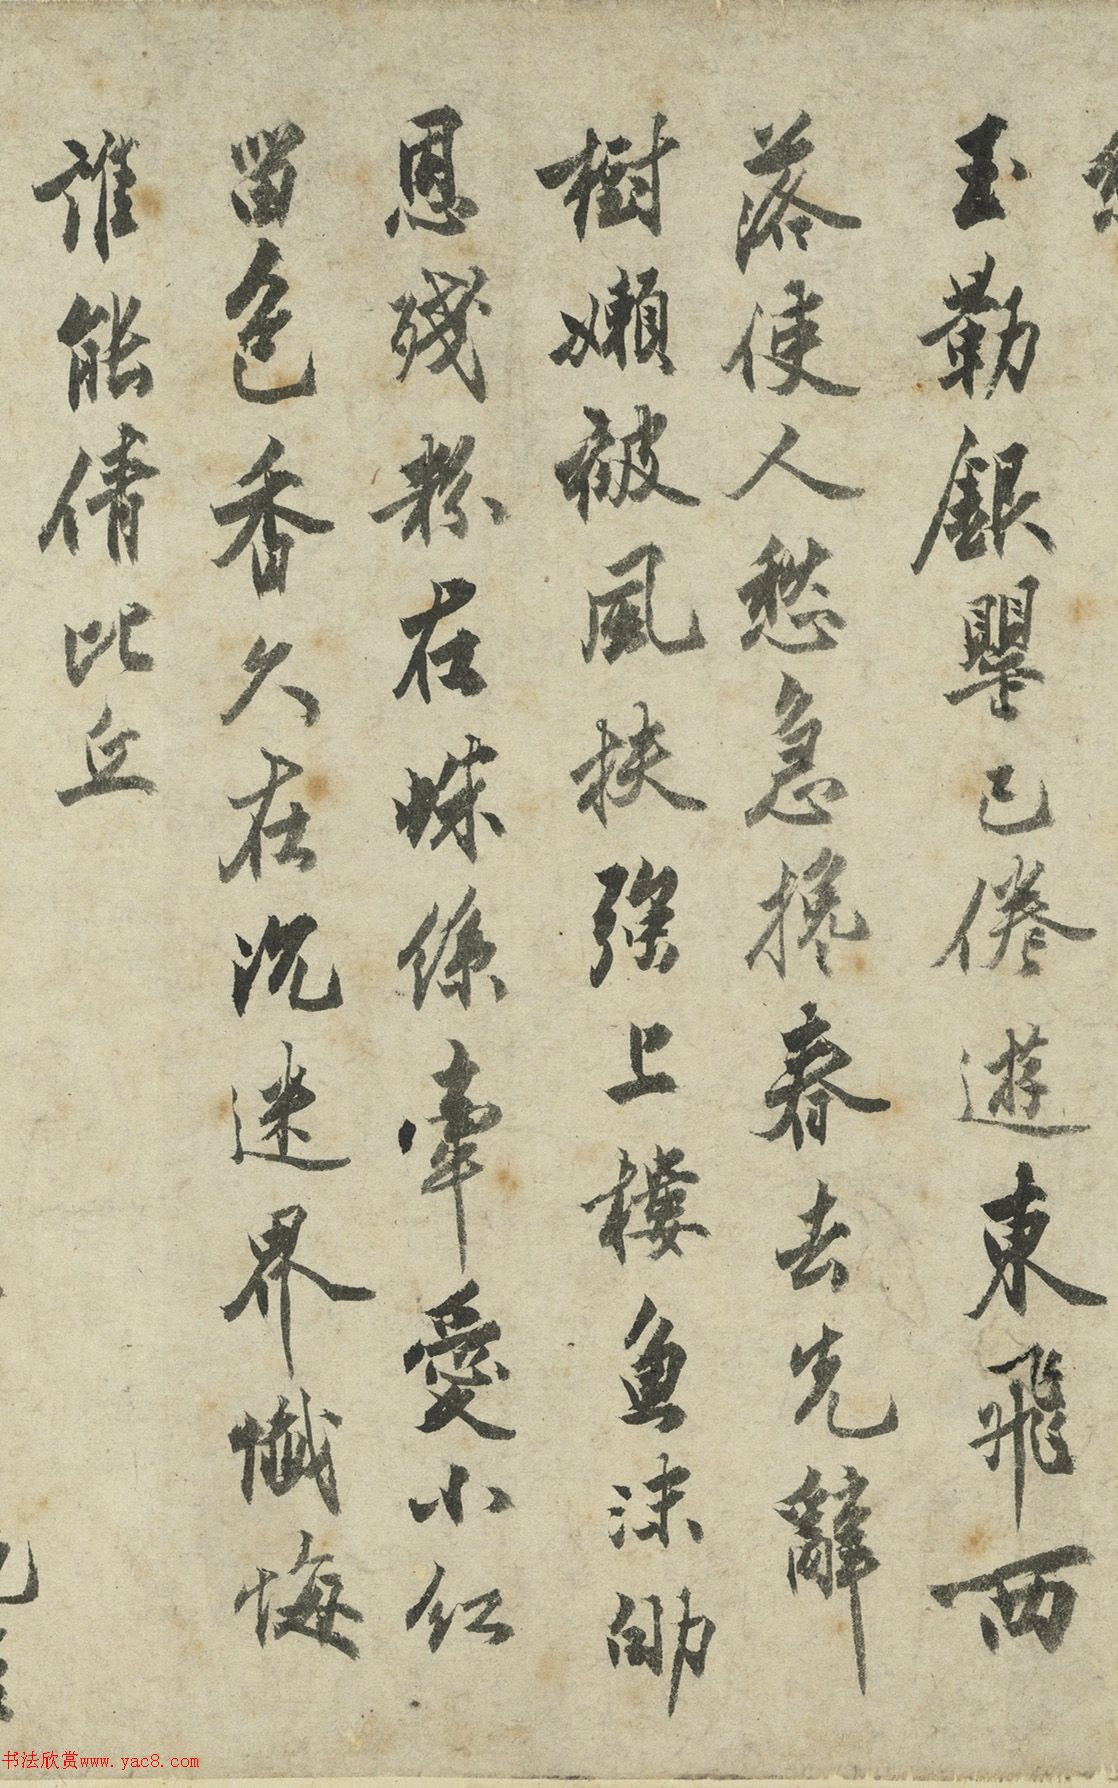 玉勒銀罌已倦遊東飛西
落使人愁急攙春去先辭
樹嬾被風扶強上樓魚沫劬
恩殘粉在蛛絲牽愛小紅
留色香久在沉迷界懺悔
誰能倩比丘
书法欣赏www.yac8.com